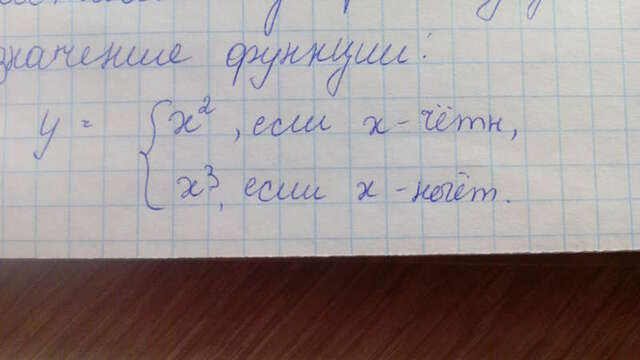 значение функции:
y = { x², если x - чётн,
x³, если x - нечёт.